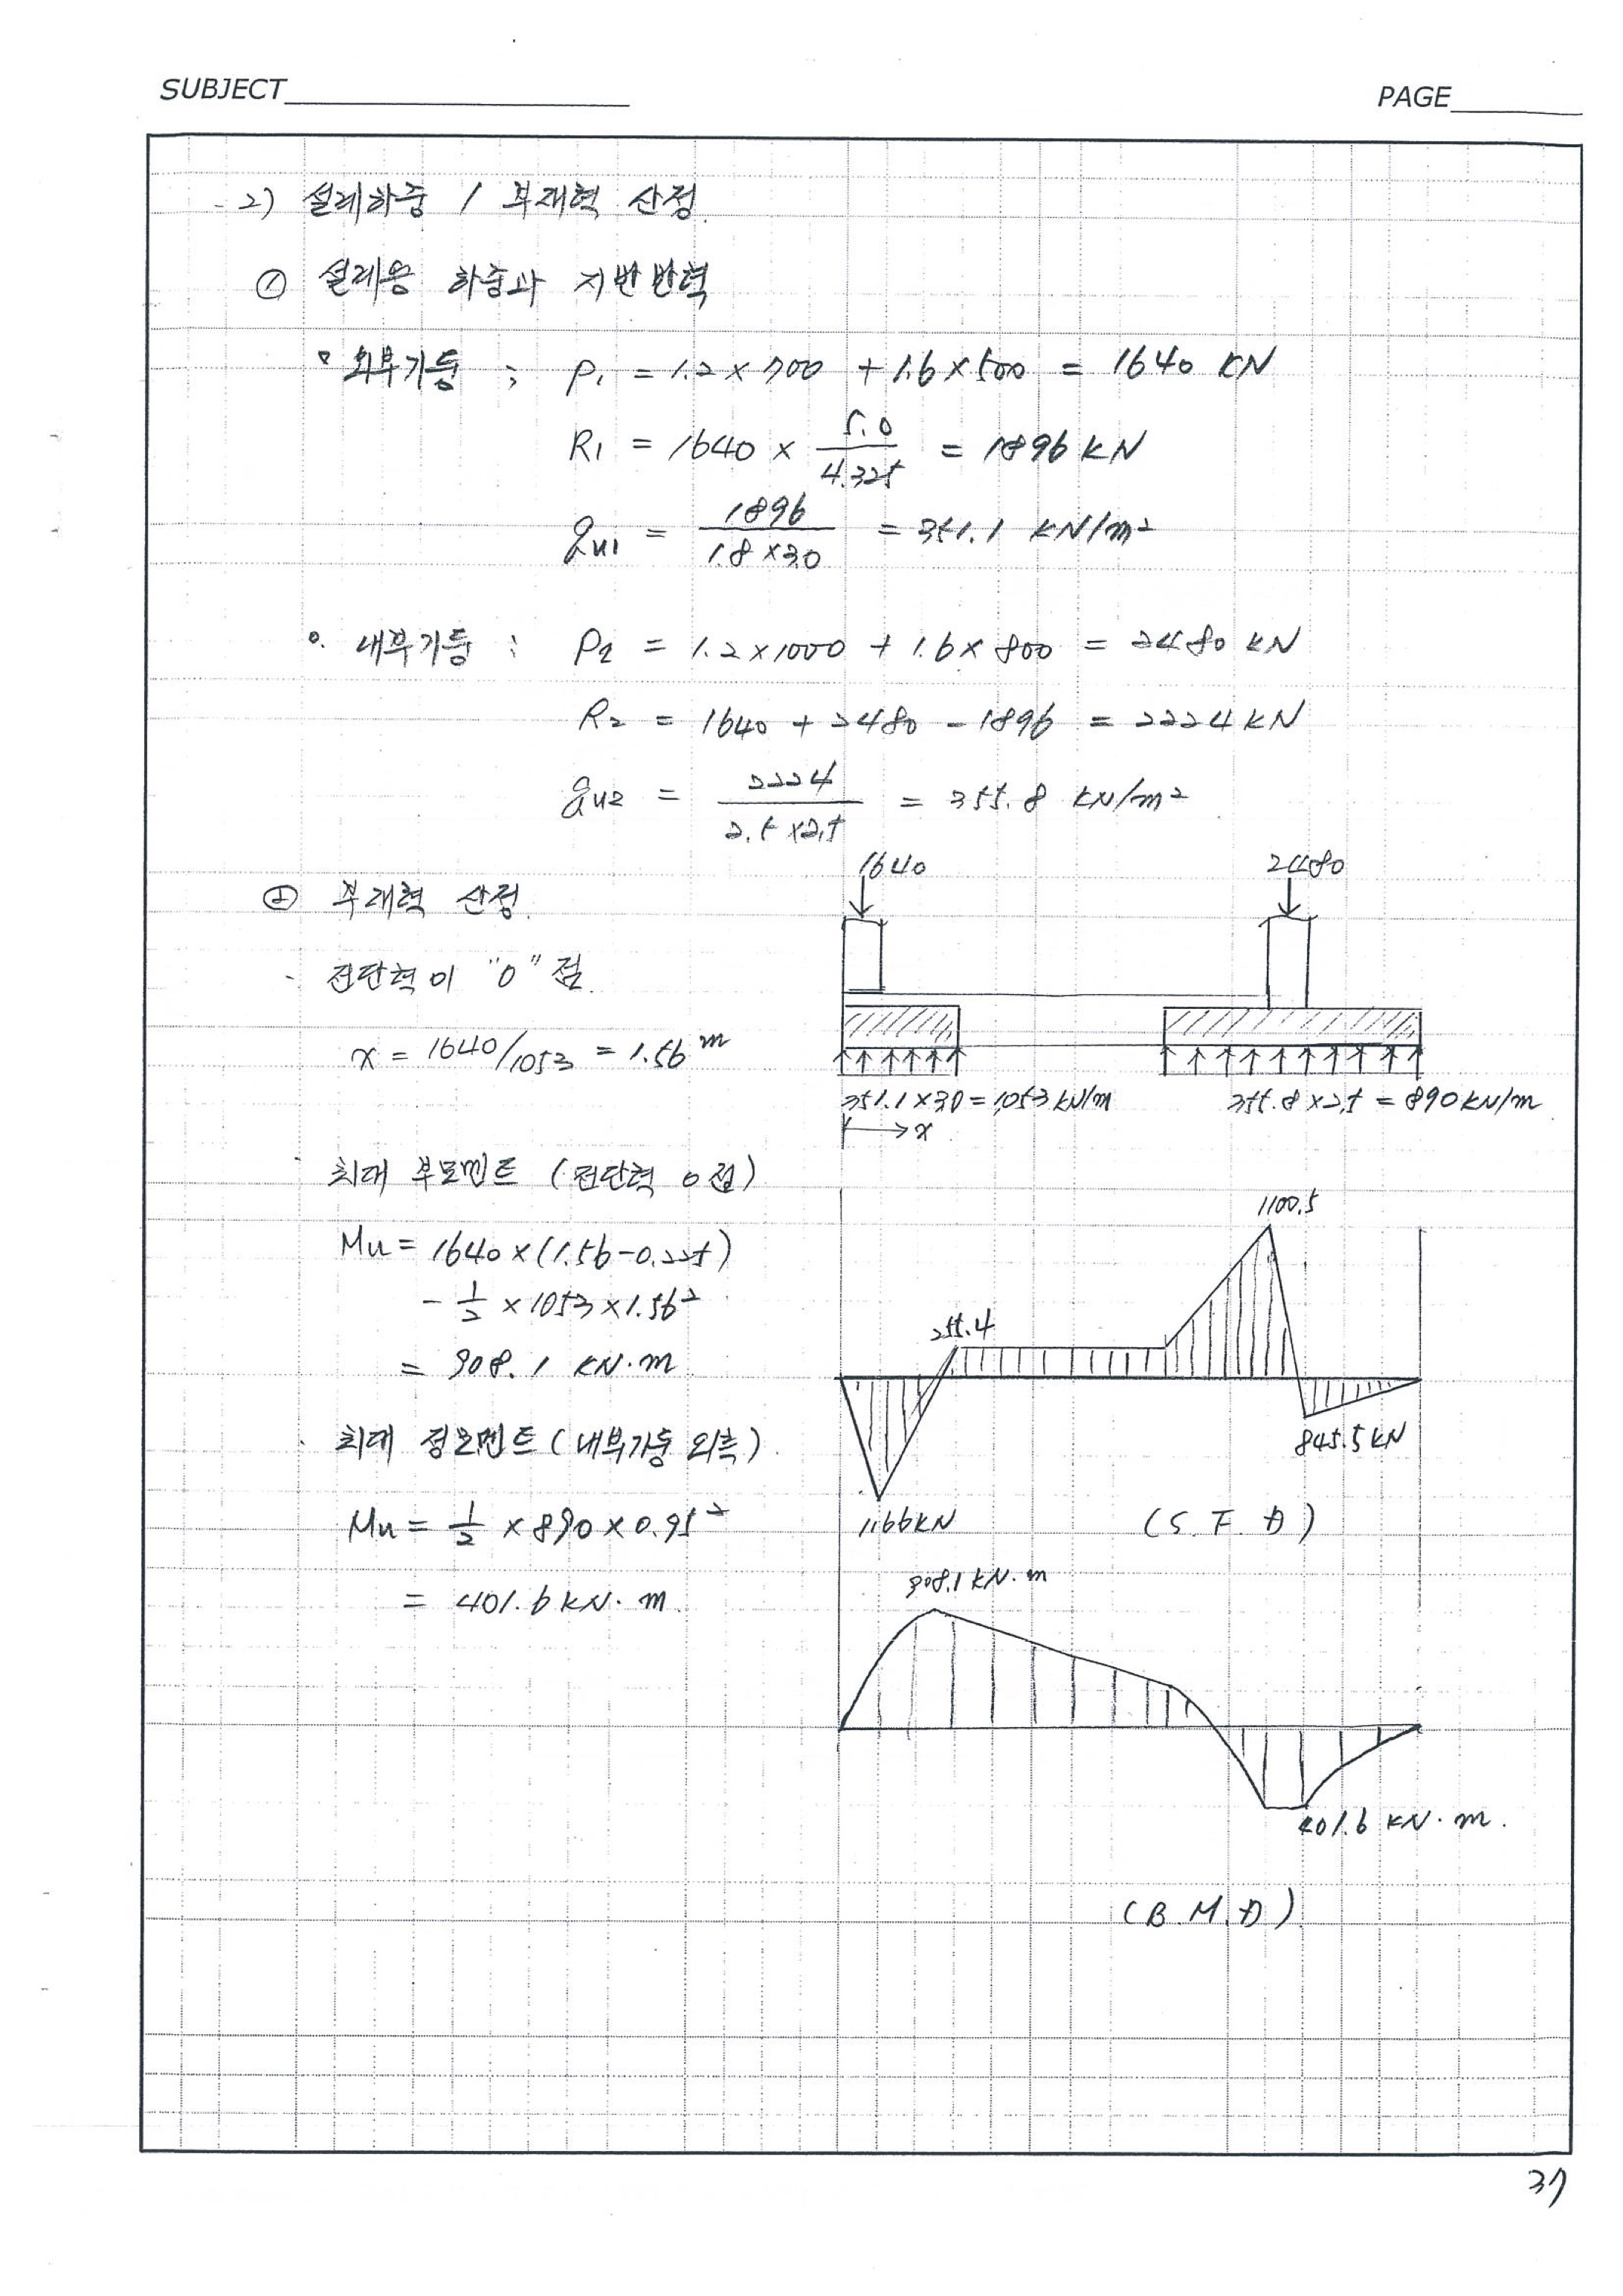 SUBJECT
PAGE
2) 설계하중 / 부재력 산정.
① 설계용 하중과 지반반력
외부기둥 ; P1 = 1.2 × 700 + 1.6 × 500 = 1640 KN
R1 = 1640 × 5.0/4.325 = 1896 KN
qu1 = 1896/1.8×3.0 = 351.1 KN/m²
내부기둥 : P2 = 1.2 × 1000 + 1.6 × 800 = 2480 KN
R2 = 1640 + 2480 - 1896 = 2224 KN
qu2 = 2224/2.5×2.5 = 355.8 KN/m²
② 부재력 산정.
1640
2480
- 전단력이 "0" 점.
x = 1640/1053 = 1.56 m
351.1 × 3.0 = 1,053 KN/m
355.8 × 2.5 = 890 KN/m
x
최대 부모멘트 (전단력 0 점)
Mu = 1640 × (1.56 - 0.225)
- 1/2 × 1053 × 1.56²
= 908.1 KN·m
1100.5
255.4
845.5 KN
1,166 KN
(S.F.D)
최대 정모멘트 (내부기둥 외측)
Mu = 1/2 × 890 × 0.95²
= 401.6 KN·m.
908.1 KN·m
401.6 KN·m.
(B.M.D)
37